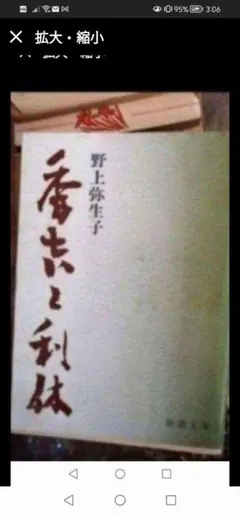 95% 3:06
× 拡大・縮小
野上弥生子
秀吉と利休
新潮文庫